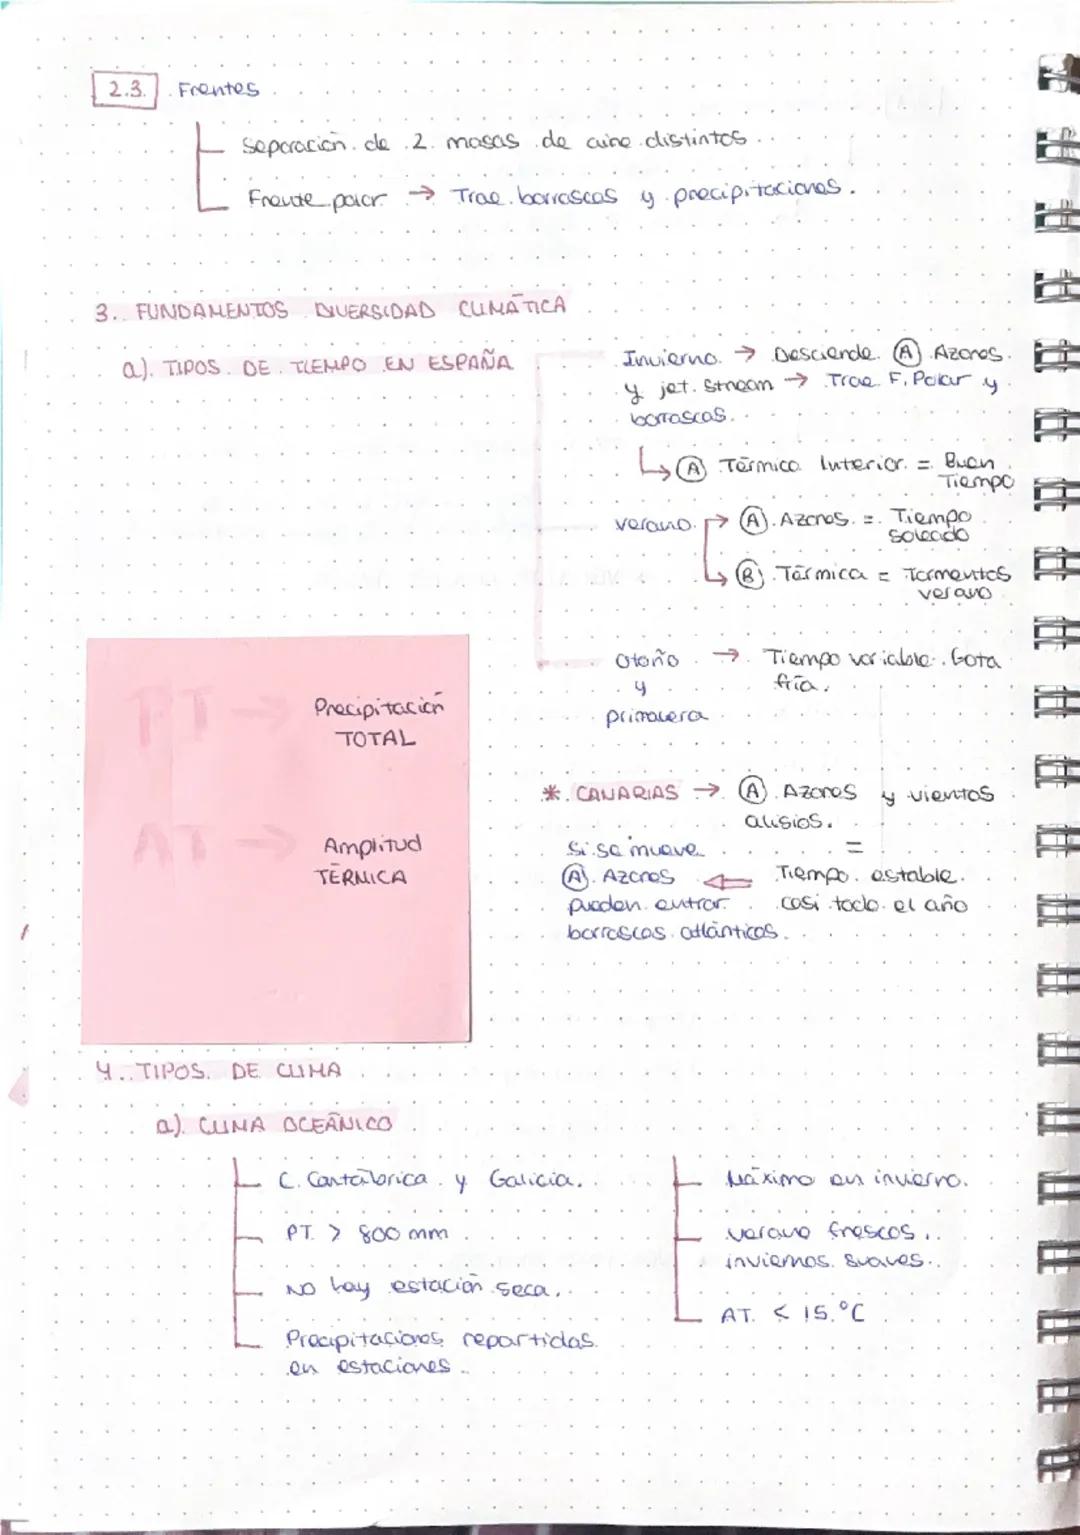 2.3. Frentes
Separación de 2 masas de aire distintas.
Frente polar → Trae borrascas y precipitaciones.
3. FUNDAMENTOS DIVERSIDAD CLIMÁTICA
a). TIPOS DE TIEMPO EN ESPAÑA
Invierno → Desciende (A) Azores
y jet. Stream → Trae F. Polar y
borrascas.
↳ (A) Térmico Interior = Buen
Tiempo
verano → (A). Azores = Tiempo
soleado
↳ (B). Térmica = Tormentas
verano
Otoño → Tiempo variable. Gota
y fría.
primavera
Precipitación
PT →
TOTAL
AT → Amplitud
TÉRMICA
*. CANARIAS → (A) Azores y vientos
alisios.
=
Tiempo estable
casi todo el año
Si se mueve
(A). Azores ⇐
pueden entrar
borrascas atlánticas.
4. TIPOS DE CLIMA
a). CLIMA OCEÁNICO
C. Cantábrica y Galicia.
PT > 800 mm
NO hay estación seca.
Precipitaciones repartidas
en estaciones.
Máximo en invierno.
verano frescos.
inviernos suaves.
AT. < 15.°C